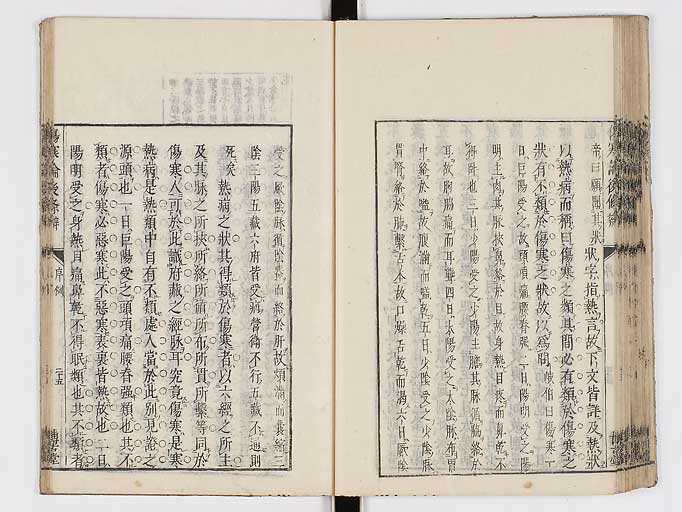 帝曰願聞其狀　狀字指熱言故下文皆詳及熱狀
以熱病而稱曰傷寒之類其間必有類於傷寒之
狀有不類於傷寒之狀故以為問　岐伯曰傷寒一
日巨陽受之故頭項痛腰脊強二日陽明受之陽
明主肉其脉俠鼻絡於目故身熱目疼而鼻乾不
得臥也三日少陽受之少陽主膽其脉循脇絡於
耳故胸脇痛而耳聾四日太陰受之太陰脉布胃
中絡於嗌故腹滿而嗌乾五日少陰受之少陰脉
貫腎絡於肺繫舌本故口燥舌乾而渴六日厥陰
受之厥陰脉循陰器而絡於肝故煩滿而囊縮三
陰三陽五藏六府皆受病營衛不行五藏不通則
死矣　熱病之狀其得類於傷寒者以六經之所主
及其脉之所挾所絡所循所布所貫所繫等同於
傷寒人可於此識府藏之經脉耳究竟傷寒是寒
熱病是熱類中自有不類處人當於此別見證之
源頭也一日巨陽受之頭項痛腰脊強類也其不
類者傷寒必惡寒此不惡寒表裏皆熱故也二日
陽明受之身熱目痛鼻乾不得眠類也其不類者
傷寒論後條辨
序例
二十五